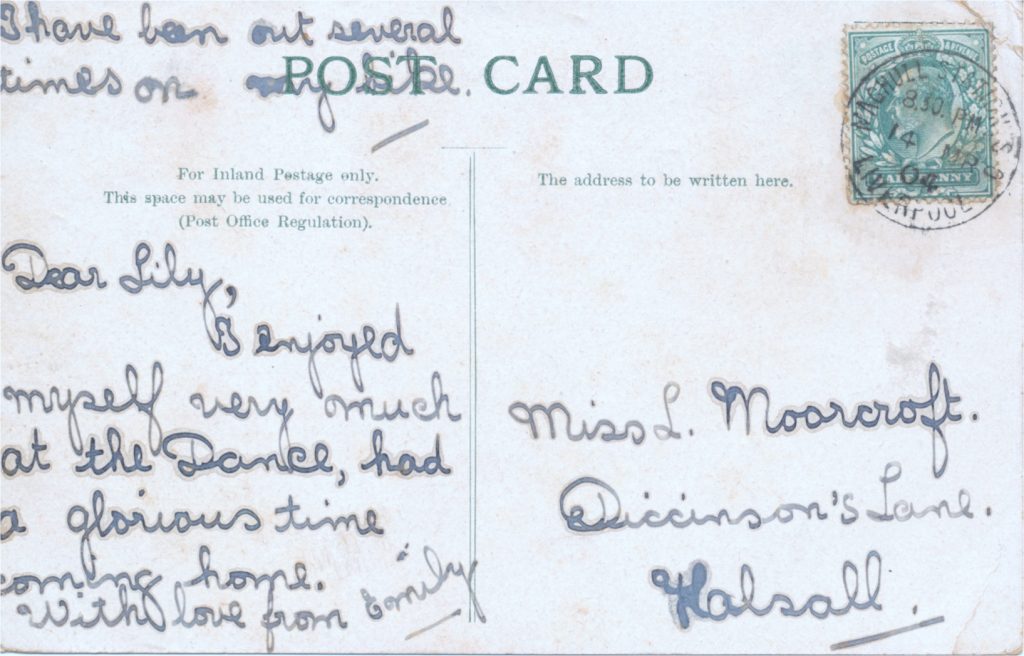 I have been out several
times on my bike.
POST CARD
For Inland Postage only.
This space may be used for correspondence
(Post Office Regulation).
The address to be written here.
POSTAGE & REVENUE
HALFPENNY
MAGHULL
8.30 PM
14
04
LIVERPOOL
Dear Lily,
I enjoyed
myself very much
at the Dance, had
a glorious time
coming home.
With love from Emily
Miss L. Moorcroft.
Diccinson's Lane.
Halsall.